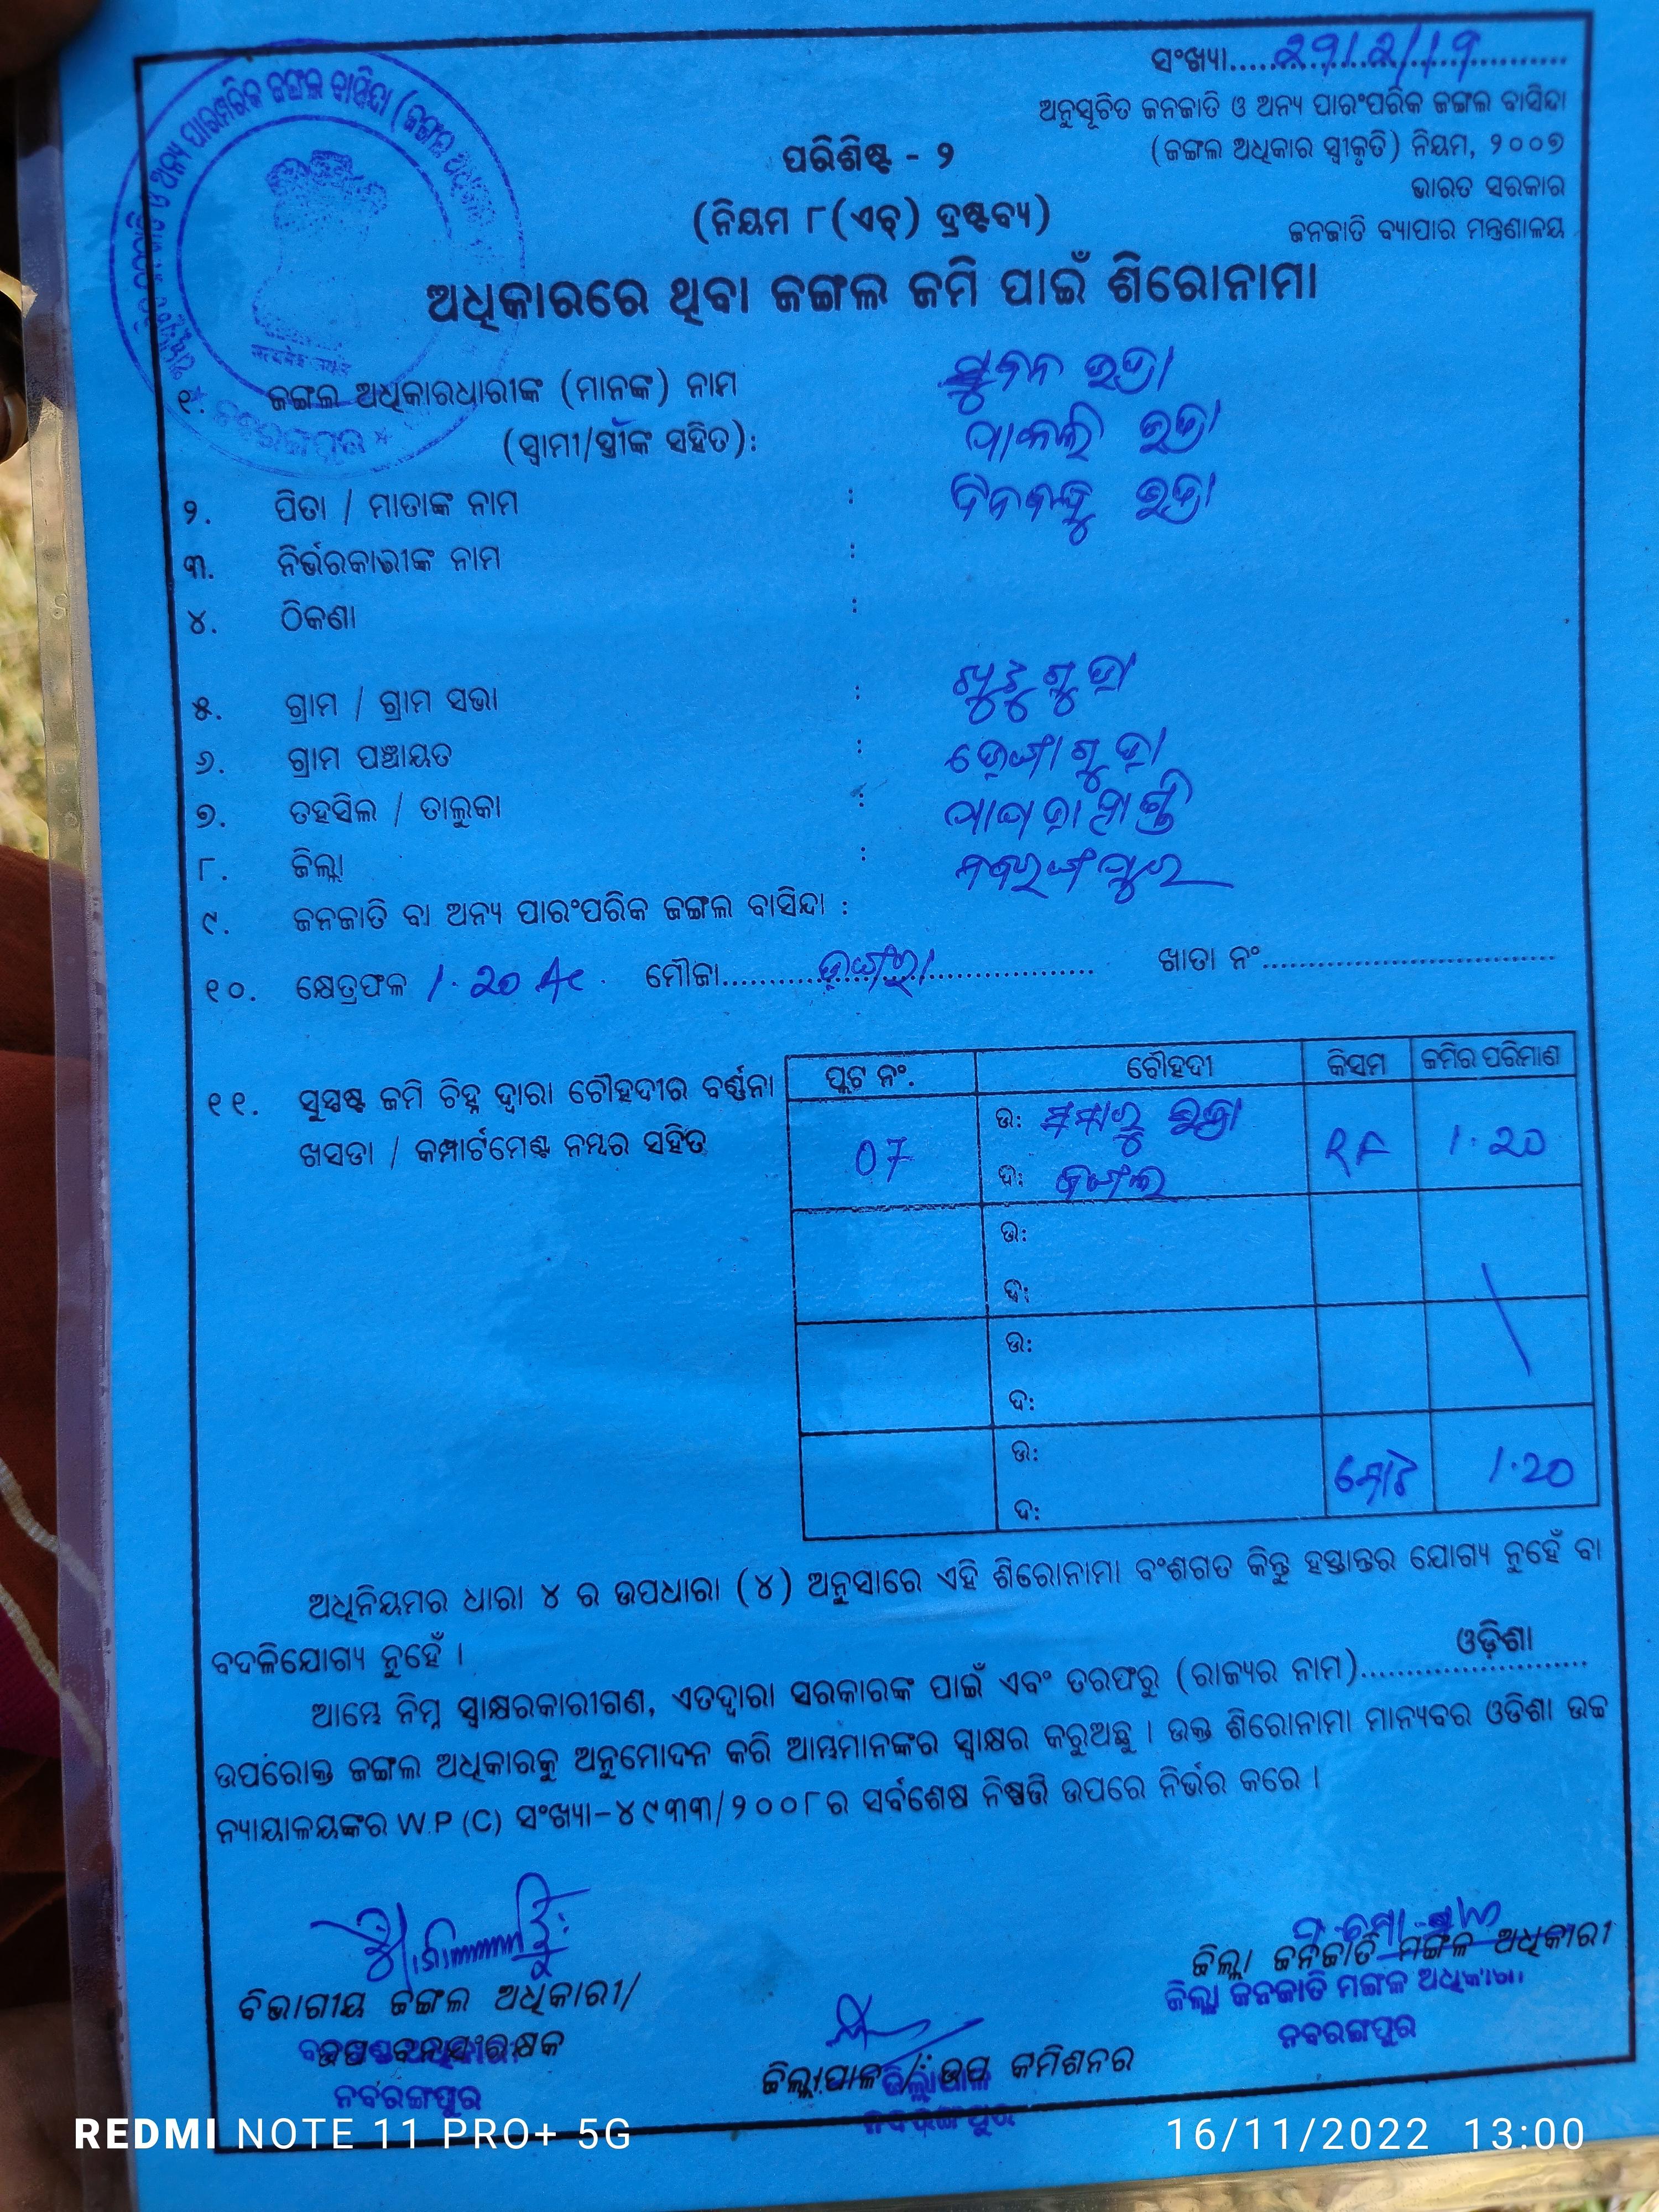 ସଂଖ୍ୟା..........
ଅନୁସୂଚିତ ଜନଜାତି ଓ ଅନ୍ୟ ପାରଂପରିକ ଜଙ୍ଗଲ ବାସିନ୍ଦା
(ଜଙ୍ଗଲ ଅଧିକାର ସ୍ଵୀକୃତି) ନିୟମ, ୨୦୦୭
ଭାରତ ସରକାର
ଜନଜାତି ବ୍ୟାପାର ମନ୍ତ୍ରଣାଳୟ
ପରିଶିଷ୍ଟ - ୨
(ନିୟମ ୮(ଏଚ୍) ଦ୍ରଷ୍ଟବ୍ୟ)
ଅଧିକାରରେ ଥିବା ଜଙ୍ଗଲ ଜମି ପାଇଁ ଶିରୋନାମା
୧. ଜଙ୍ଗଲ ଅଧିକାରଧାରୀଙ୍କ (ମାନଙ୍କ) ନାମ
(ସ୍ଵାମୀ/ସ୍ତ୍ରୀଙ୍କ ସହିତ):
୨. ପିତା / ମାତାଙ୍କ ନାମ :
୩. ନିର୍ଭରକାରୀଙ୍କ ନାମ :
୪. ଠିକଣା :
୫. ଗ୍ରାମ / ଗ୍ରାମ ସଭା :
୬. ଗ୍ରାମ ପଞ୍ଚାୟତ :
୭. ତହସିଲ / ତାଲୁକା : ପାପଡାହାଣ୍ଡି
୮. ଜିଲ୍ଲା : ନବରଙ୍ଗପୁର
୯. ଜନଜାତି ବା ଅନ୍ୟ ପାରଂପରିକ ଜଙ୍ଗଲ ବାସିନ୍ଦା :
୧୦. କ୍ଷେତ୍ରଫଳ 1.20 Ac. ମୌଜା.......... ଖାତା ନଂ..........
୧୧. ସୁସ୍ପଷ୍ଟ ଜମି ଚିହ୍ନ ଦ୍ଵାରା ଚୌହଦୀର ବର୍ଣ୍ଣନା
ଖସଡା / କମ୍ପାର୍ଟମେଣ୍ଟ ନମ୍ବର ସହିତ
ପ୍ଲଟ ନଂ. ଚୌହଦୀ କିସମ ଜମିର ପରିମାଣ
07 ଉ: RF 1.20
ଦ: ଜଙ୍ଗଲ
ଉ:
ଦ:
ଉ:
ଦ:
ଉ: ମୋଟ 1.20
ଦ:
ଅଧିନିୟମର ଧାରା ୪ ର ଉପଧାରା (୪) ଅନୁସାରେ ଏହି ଶିରୋନାମା ବଂଶଗତ କିନ୍ତୁ ହସ୍ତାନ୍ତର ଯୋଗ୍ୟ ନୁହେଁ ବା
ବଦଳିଯୋଗ୍ୟ ନୁହେଁ ।
ଆମ୍ଭେ ନିମ୍ନ ସ୍ଵାକ୍ଷରକାରୀଗଣ, ଏତଦ୍ଵାରା ସରକାରଙ୍କ ପାଇଁ ଏବଂ ତରଫରୁ (ରାଜ୍ୟର ନାମ)..........ଓଡ଼ିଶା
ଉପରୋକ୍ତ ଜଙ୍ଗଲ ଅଧିକାରକୁ ଅନୁମୋଦନ କରି ଆମ୍ଭମାନଙ୍କର ସ୍ଵାକ୍ଷର କରୁଅଛୁ । ଉକ୍ତ ଶିରୋନାମା ମାନ୍ୟବର ଓଡିଶା ଉଚ୍ଚ
ନ୍ୟାୟାଳୟଙ୍କର W.P (C) ସଂଖ୍ୟା-୪୯୩୩/୨୦୦୮ର ସର୍ବଶେଷ ନିଷ୍ପତ୍ତି ଉପରେ ନିର୍ଭର କରେ ।
ବିଭାଗୀୟ ଜଙ୍ଗଲ ଅଧିକାରୀ/
ନବରଙ୍ଗପୁର
ଜିଲ୍ଲାପାଳ / ଉପ କମିଶନର
ଜିଲ୍ଲାପାଳ
ନବରଙ୍ଗପୁର
ଜିଲ୍ଲା ଜନଜାତି ମଙ୍ଗଳ ଅଧିକାରୀ
ଜିଲ୍ଲା ଜନଜାତି ମଙ୍ଗଳ ଅଧିକାରୀ
ନବରଙ୍ଗପୁର
REDMI NOTE 11 PRO+ 5G 16/11/2022 13:00